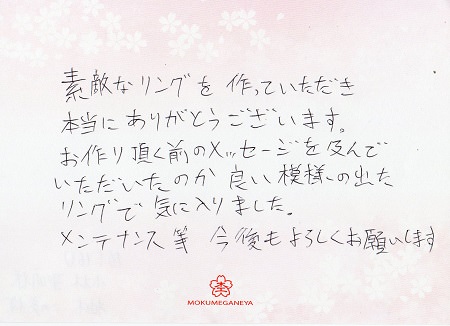 素敵なリングを作っていただき
本当にありがとうございます。
お作り頂く前のメッセージを及んで
いただいたのか良い模様の出た
リングで気に入りました。
メンテナンス等 今後もよろしくお願いします
MOKUMEGANEYA